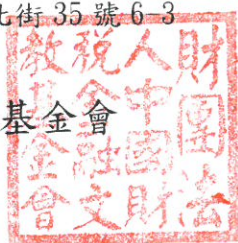 北街 35 號 6-3
基金會
財團法
人中國財
稅金融文
教基金會